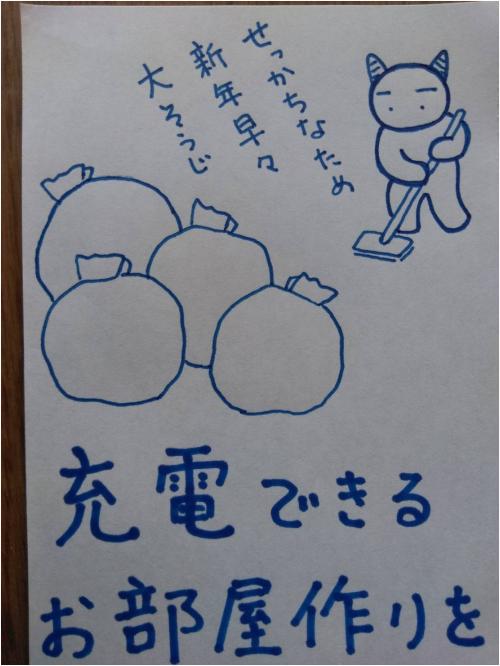 せっかちなため
新年早々
大そうじ
充電できる
お部屋作りを